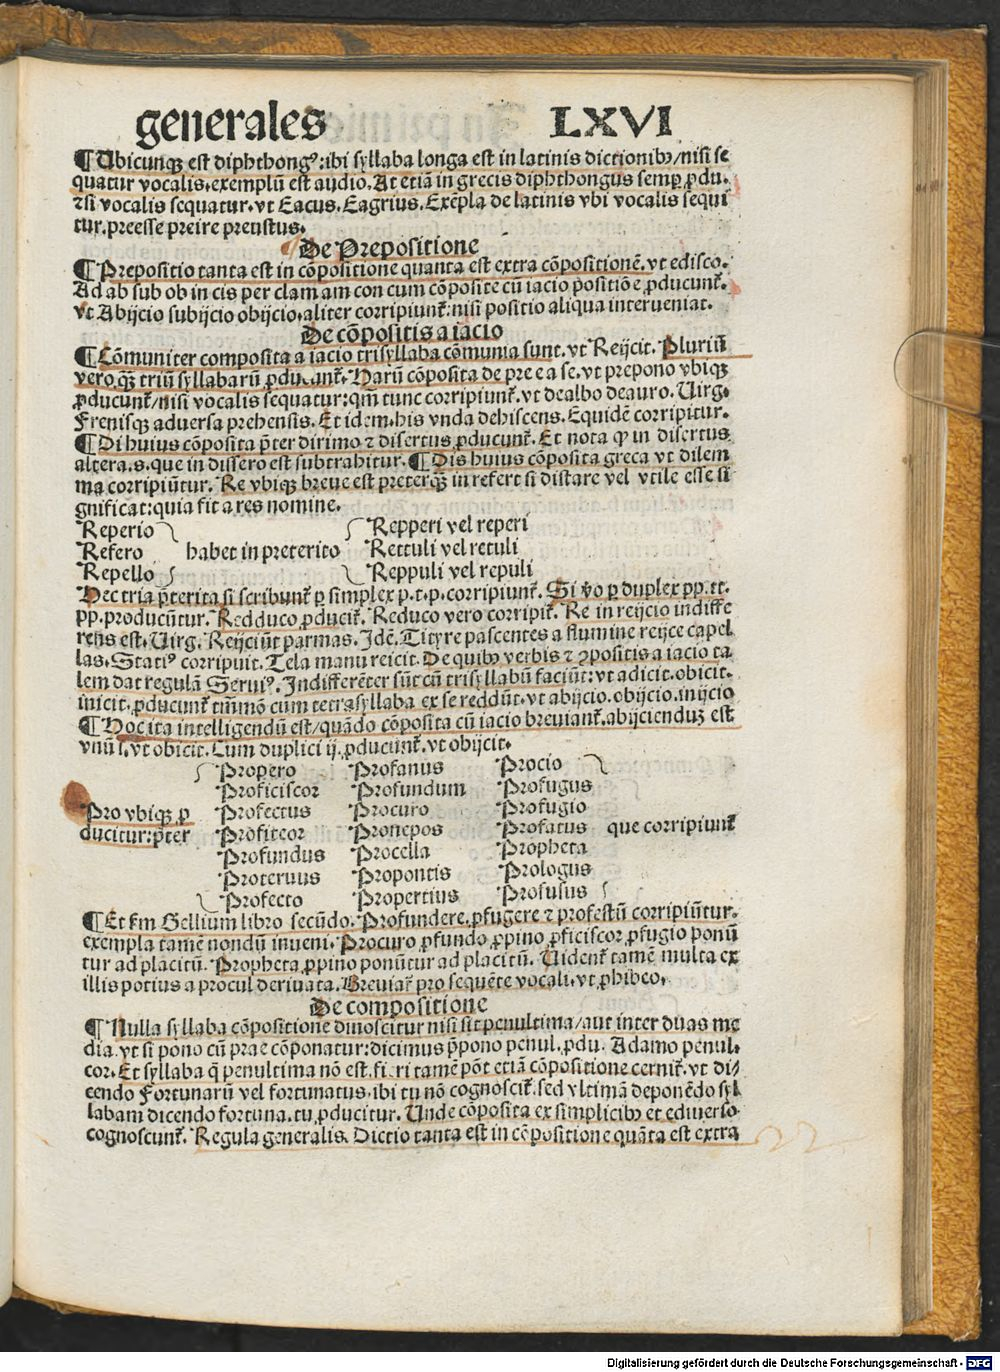 generales LXVI
¶ Vbicunqꝫ est diphthongꝰ: ibi syllaba longa est in latinis dictionibꝫ/ nisi se
quatur vocalis. exemplū est audio. At etiā in grecis diphthongus semꝑ ꝓdu.
⁊si vocalis sequatur. vt Eacus. Eagrius. Exēpla de latinis vbi vocalis sequi
tur. preesse preire preustus.
De Prepositione
¶ Prepositio tanta est in cōpositione quanta est extra cōpositionē. vt edisco.
Ad ab sub ob in cis per clam am con cum cōposite cū iacio positiōe ꝓducunt᷑.
vt Abijcio subijcio obijcio. aliter corripiunt᷑: nisi positio aliqua interueniat.
De cōpositis a iacio
¶ Cōmuniter composita a iacio trisyllaba cōmunia sunt. vt Reijcit. Pluriū
vero qꝫ triū syllabarū ꝓducunt᷑. Harū cōposita de pre e a se. vt prepono vbiqꝫ
ꝓducunt᷑/ nisi vocalis sequatur: qm̄ tunc corripiunt᷑. vt dealbo deauro. Virg.
Frenisqꝫ aduersa prehensis. Et idem. his vnda dehiscens. Equidē corripitur.
¶ Di huius cōposita p̄ter dirimo ⁊ disertus ꝓducunt᷑. Et nota ꝙ in disertus
altera .s. que in dissero est subtrahitur. ¶ Dis huius cōposita greca vt dilem
ma corripiūtur. Re vbiqꝫ breue est preterqꝫ in refert si distare vel vtile esse si
gnificat: quia fit a res nomine.
Reperio Repperi vel reperi
Refero habet in preterito Rettuli vel retuli
Repello Reppuli vel repuli
Hec tria p̄terita si scribunt᷑ ꝑ simplex p.t.p. corripiunt᷑. Si v̄o ꝑ duplex pp.tt.
pp. producūtur. Redduco ꝓducit᷑. Reduco vero corripit᷑. Re in reijcio indiffe
rens est. Virg. Reijciūt parmas. Idē. Tityre pascentes a flumine reijce capel
las. Statiꝰ corripuit. Tela manu reicit. De quibꝫ verbis ⁊ ꝯpositis a iacio ta
lem dat regulā Seruiꝰ. Indifferēter sūt cū trisyllabū faciūt: vt adicit. obicit.
inicit. ꝓducunt᷑ tm̄mō cum tetrasyllaba ex se reddūt. vt abijcio. obijcio. inijcio
¶ Hoc ita intelligendū est/ quādo cōposita cū iacio breuiant᷑. abijciendus est
vnū i. vt obicit. Cum duplici ij. ꝓducunt᷑. vt obijcit.
Propero Profanus Procio
Proficiscor Profundum Profugus
Pro vbiqꝫ ꝓ Profectus Procuro Profugio
ducitur: p̄ter Profiteor Pronepos Profatus que corripiunt᷑
Profundus Procella Propheta
Proteruus Propontis Prologus
Profecto Propertius Profusus
¶ Et s̄m Gellium libro secūdo. Profundere. ꝓfugere ⁊ profestū corripiūtur.
exempla tamē nondū inueni. Procuro ꝓfundo ꝓpino ꝓficiscor ꝓfugio ponū
tur ad placitū. Propheta ꝓpino ponūtur ad placitū. Vident᷑ tamē multa ex
illis potius a procul deriuata. Breuiat᷑ pro sequēte vocali. vt ꝓhibeo.
De compositione
¶ Nulla syllaba cōpositione dinoscitur nisi sit penultima/ aut inter duas me
dia. vt si pono cū prae cōponatur: dicimus p̄pono penul. ꝓdu. Adamo penul.
cor. Et syllaba q̄ penultima nō est. fi. ri tamē pōt etiā cōpositione cernit᷑. vt di/
cendo Fortunarū vel fortunatus. ibi tu nō cognoscit᷑. sed vltimā deponēdo syl
labam dicendo fortuna. tu ꝓducitur. Unde cōposita ex simplicibꝫ et ediuerso
cognoscunt᷑. Regula generalis. Dictio tanta est in cōpositione quāta est extra
22
Digitalisierung gefördert durch die Deutsche Forschungsgemeinschaft - DFG